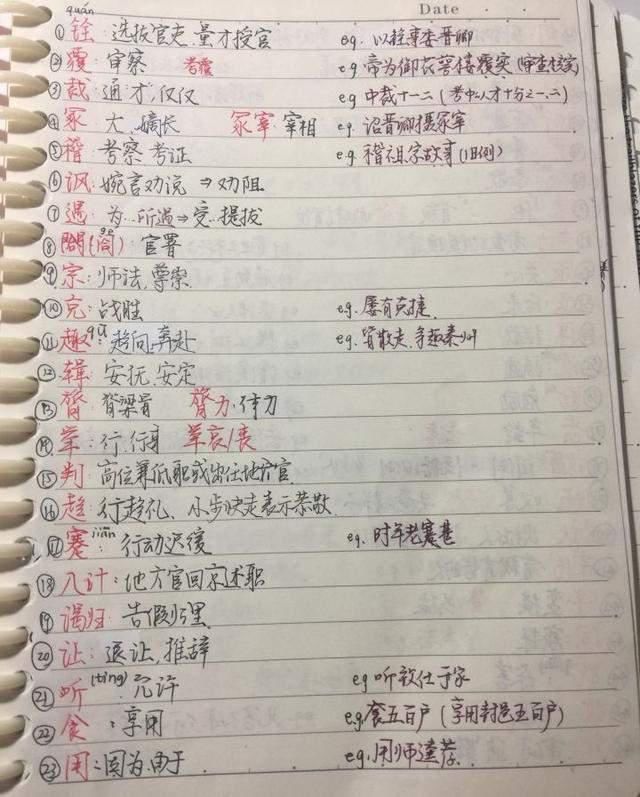 quán
Date
①铨:选拔官吏,量才授官 eg. 以铨事委晋卿
②覆 审察 考覆 eg. 帝为御衣箬楼覆实(审查核实)
③裁 通才,仅仅 eg 中裁十一二(考中人才十分之一、二)
④冢 大、嫡长 冢宰 宰相 eg. 诏晋卿摄冢宰
⑤稽 考察 考证 eg. 稽祖宗故事(旧例)
⑥讽:婉言劝说 ⇒劝阻
⑦遇:为…所遇⇒受…提拔
⑧閤(阁) gé 官署
⑨宗:师法,尊崇
⑩克:战胜 eg. 屡有克捷
⑪趣qū:趋向,奔赴 eg. 皆散走,争趣秦州
⑫辑 安抚,安定
⑬膂 脊梁骨 膂力 体力
⑭举:行,行身 举哀/丧
⑮判:高位兼低职或出任地方官
⑯趋:行趋礼、小步快走表示恭敬
⑰蹇jiǎn:行动迟缓 eg. 时年老蹇甚
⑱入计:地方官回京述职
⑲谒归 告假归里
⑳让:退让,推辞
㉑听(tīng) 允许 eg 听致仕于家
㉒食:享用 eg食五百户(享用封邑五百户)
㉓用:因为.由于 eg.用师逵荐